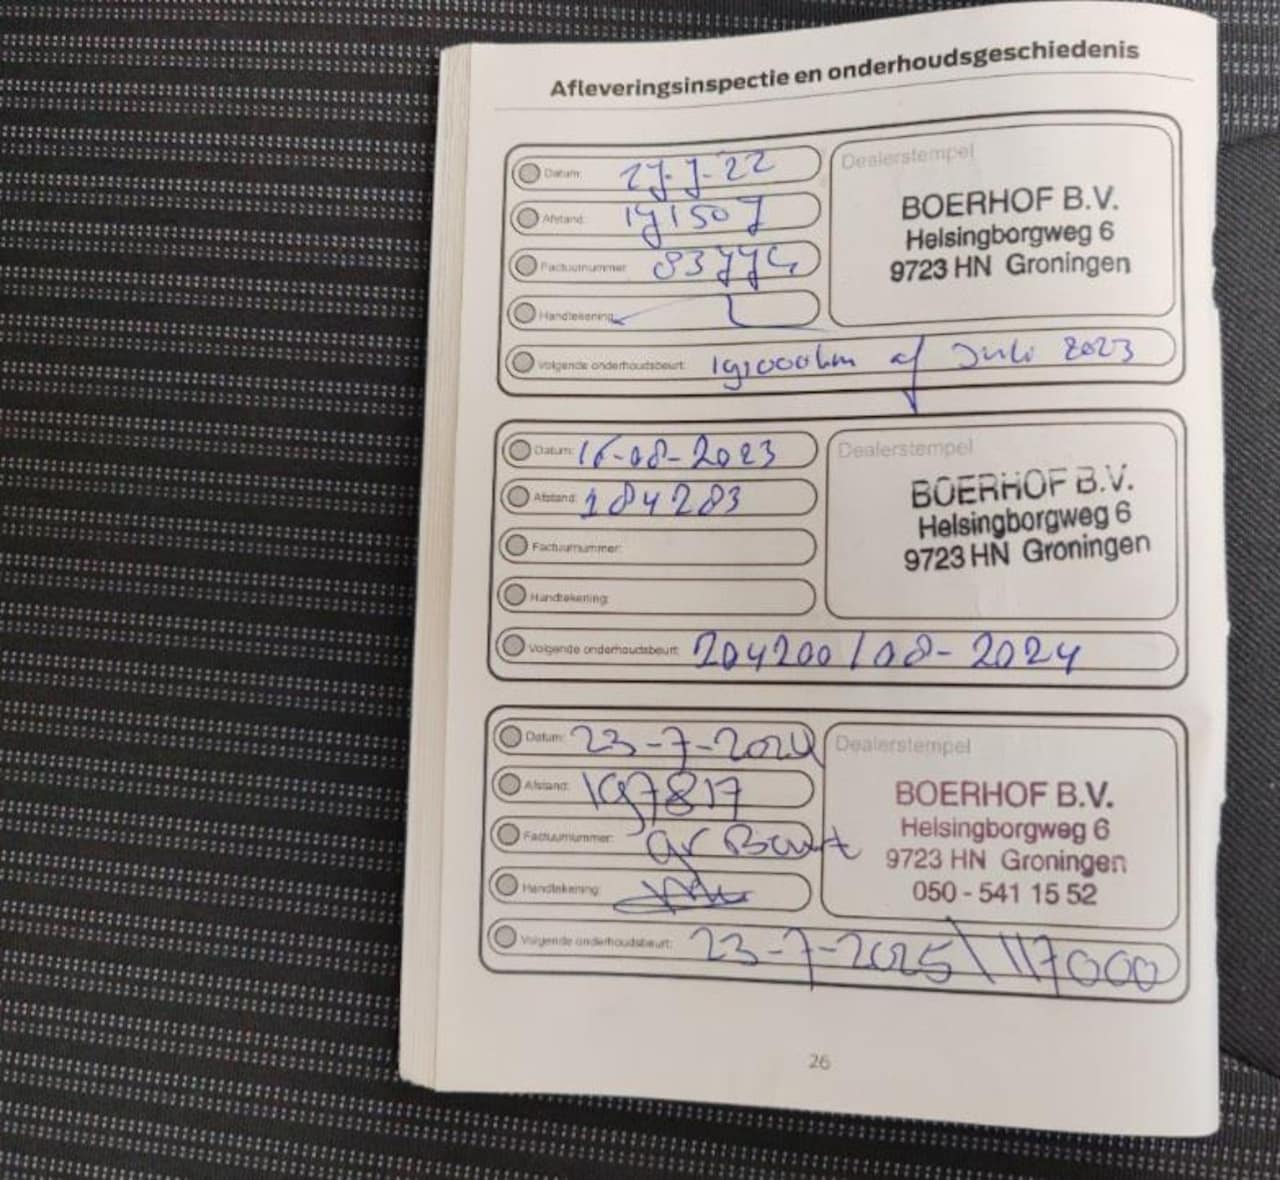 Afleveringsinspectie en onderhoudsgeschiedenis
Datum: 27-7-22
Afstand: 171507
Factuurnummer:
Handtekening:
Volgende onderhoudsbeurt: 191000km of Juli 2023
Dealerstempel
BOERHOF B.V.
Helsingborgweg 6
9723 HN Groningen
Datum: 16-08-2023
Afstand: 184283
Factuurnummer:
Handtekening:
Volgende onderhoudsbeurt: 204200/08-2024
Dealerstempel
BOERHOF B.V.
Helsingborgweg 6
9723 HN Groningen
Datum: 23-7-2024
Afstand: 197817
Factuurnummer: gr Beurt
Handtekening:
Volgende onderhoudsbeurt: 23-7-2025 \ 117000
Dealerstempel
BOERHOF B.V.
Helsingborgweg 6
9723 HN Groningen
050 - 541 15 52
26